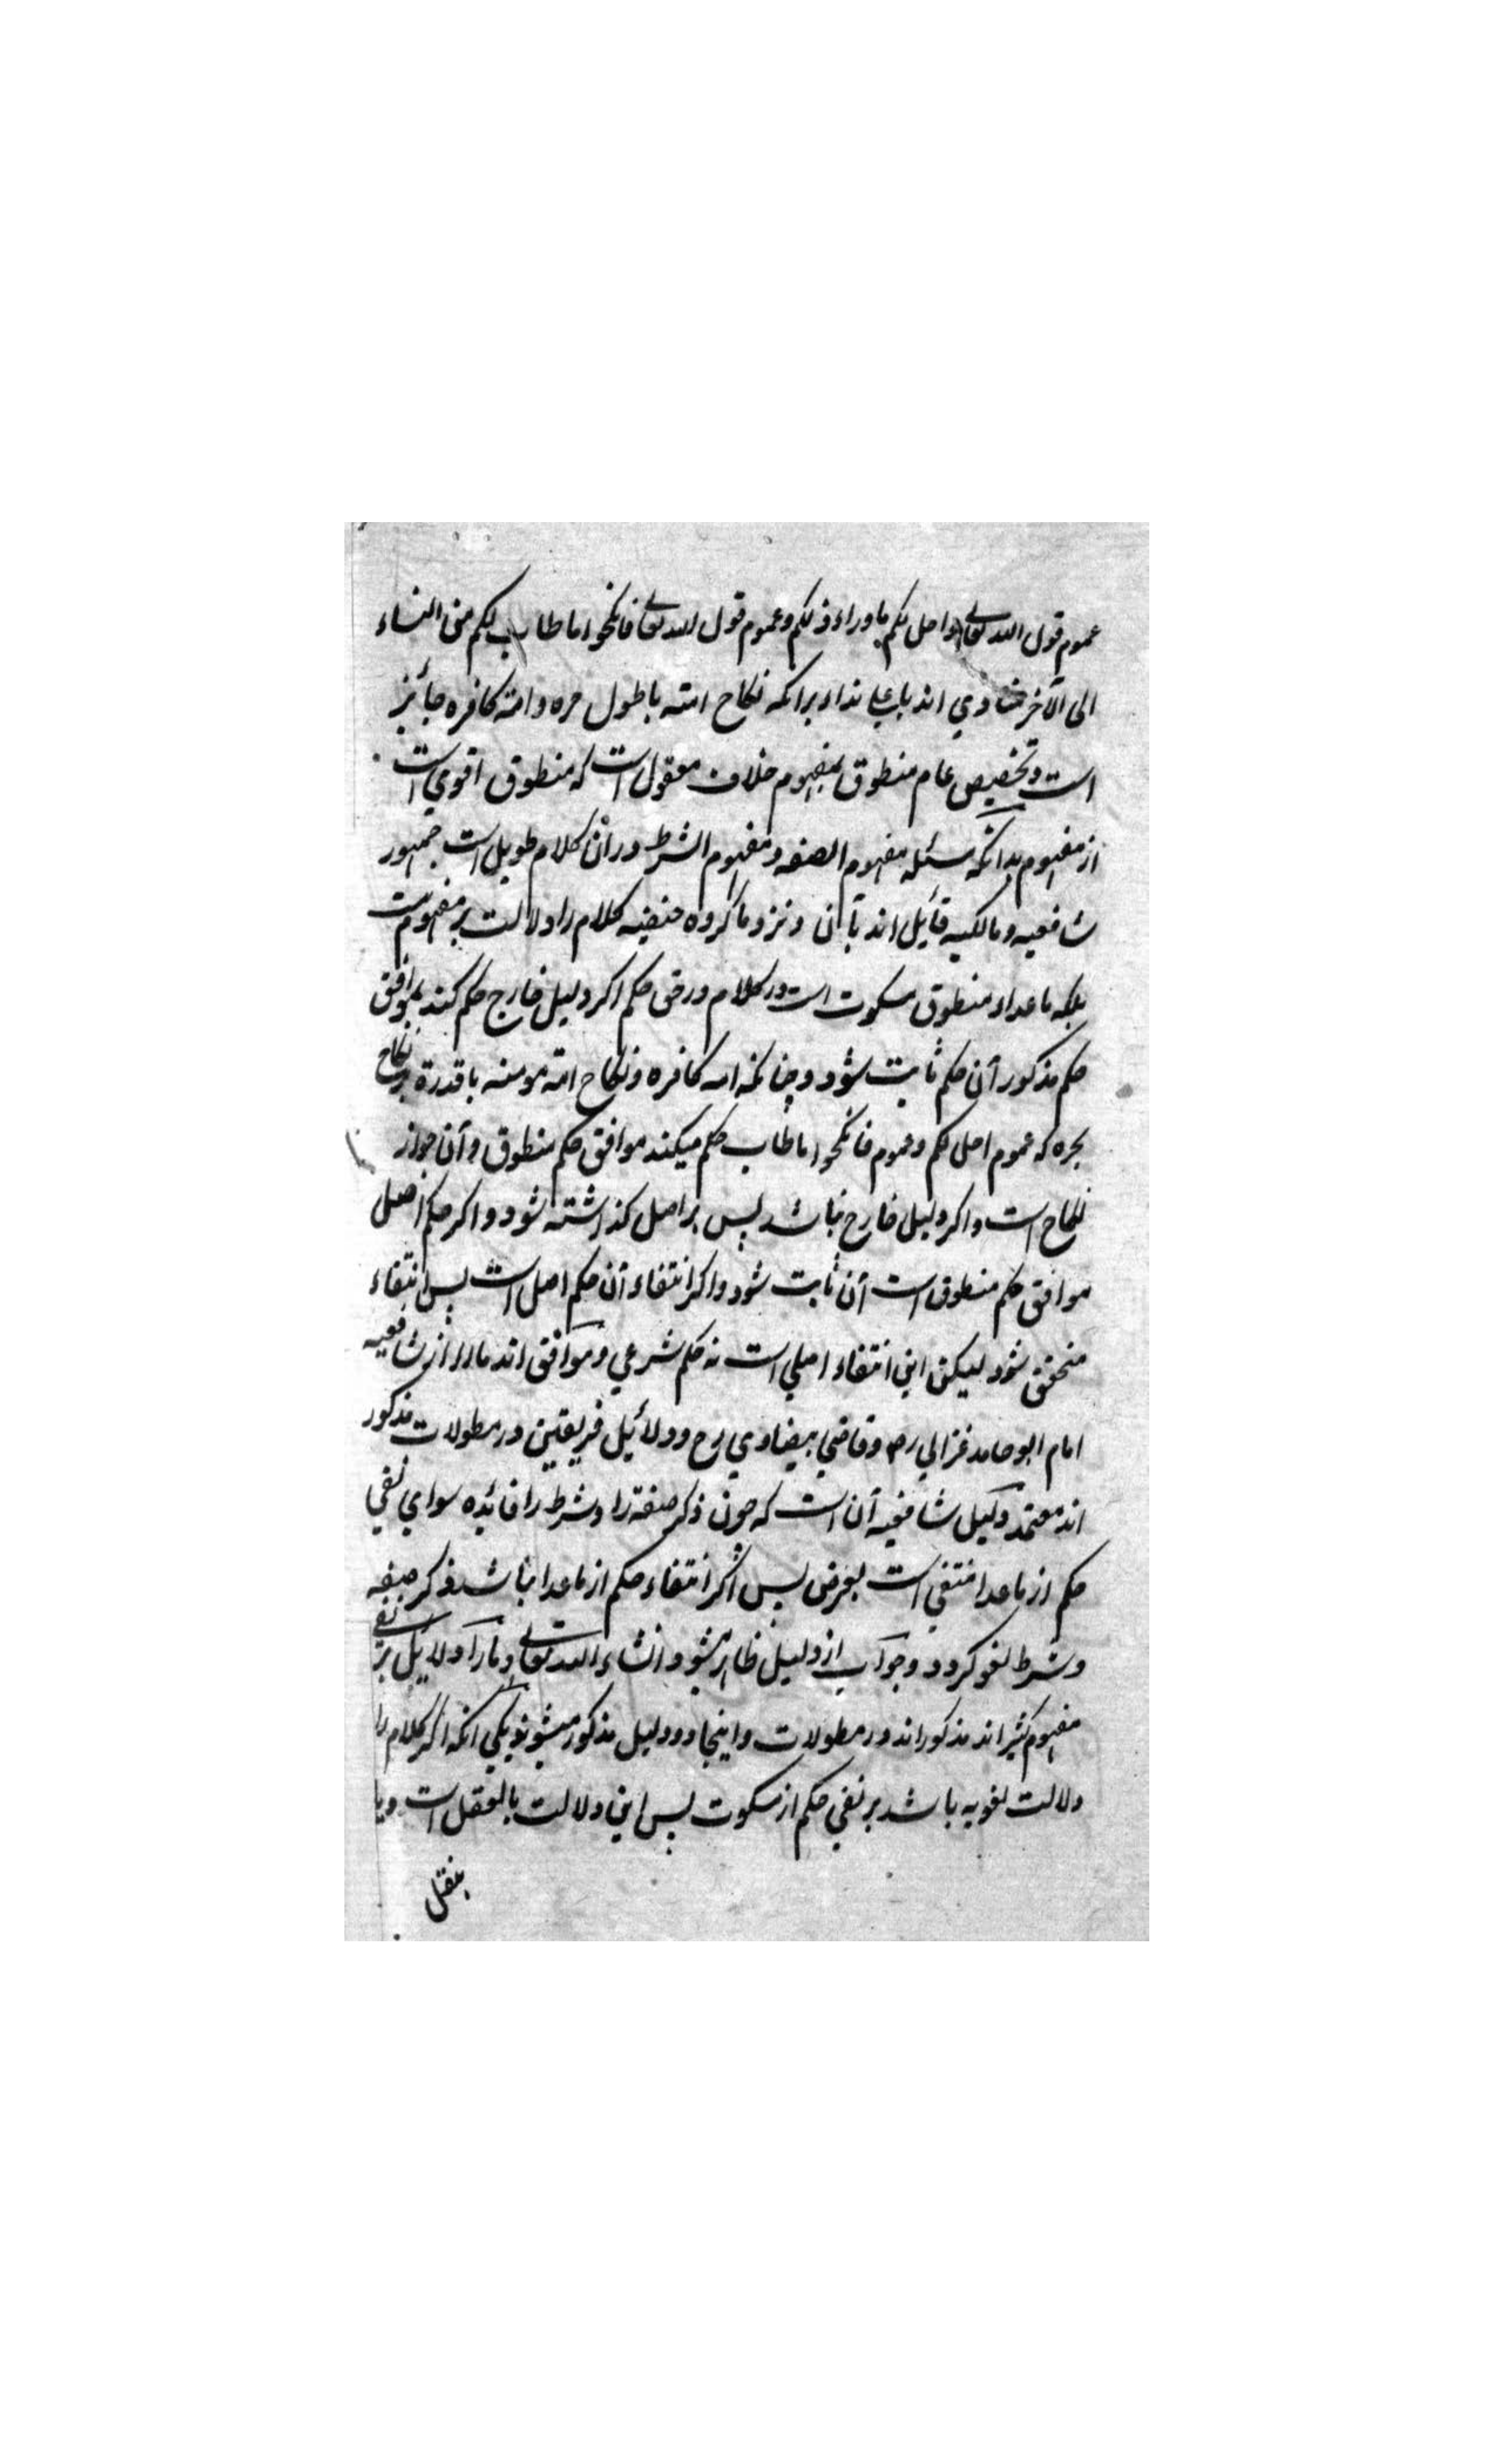 عموم قول الله تعالی واحل لکم ما وراء ذلکم وعموم قول الله تعالی فانکحوا ما طاب لکم من النساء
الی الآخر منادی اند باعلی نداء برانکه نکاح امته با طول حره وامته کافره جائز
است وتخصیص عام منطوق بمفهوم خلاف معقول است که منطوق اقوی است
از مفهوم بدانکه مسئله مفهوم الصفه ومفهوم الشرط درآن کلام طویل است جمهور
شافعیه ومالکیه قائیل اند بآن ونزد ما کروه حنفیه کلام را دلالت بر مفهوم نیست
بلکه ماعداء منطوق مسکوت است در کلام در حق حکم اکر دلیل خارج حکم کند بموافق
حکم مذکور آن حکم ثابت شود چنانکه امه کافره ونکاح امته مومنه با قدرة بر نکاح
بحره که عموم احل لکم وعموم فانکحوا ما طاب حکم میکند موافق حکم منطوق وآن جواز
نکاح است واکر دلیل خارج نباشد پس بر اصل کذاشته شود واکر حکم اصل
موافق حکم منطوق است آن ثابت شود واکر انتفاء آن حکم اصل است پس انتفاء
متحقق شود لیکن این انتفاء اصلی است نه حکم شرعی وموافق اند مارا از شافعیه
امام ابو حامد غزالی رح وقاضی بیضاوی رح ودلائیل فریقین در مطولات مذکور
اند معتمد دلیل شافعیه آن است که چون ذکر صفة را وشرط را فائده سوای نفی
حکم از ماعدا منتفی است بفرض پس اکر انتفاء حکم از ماعدا نباشد ذکر صفه
وشرط لغو کردد وجواب از دلیل ظاهر میشود انشاء الله تعالی ومارا دلائیل بر نفی
مفهوم کثیر اند مذکور اند در مطولات واینجا دو دلیل مذکور میشوند یکی انکه اکر کلام را
دلالت لغویه باشد بر نفی حکم از مسکوت پس این دلالت بالعقل است ویا
بنقل